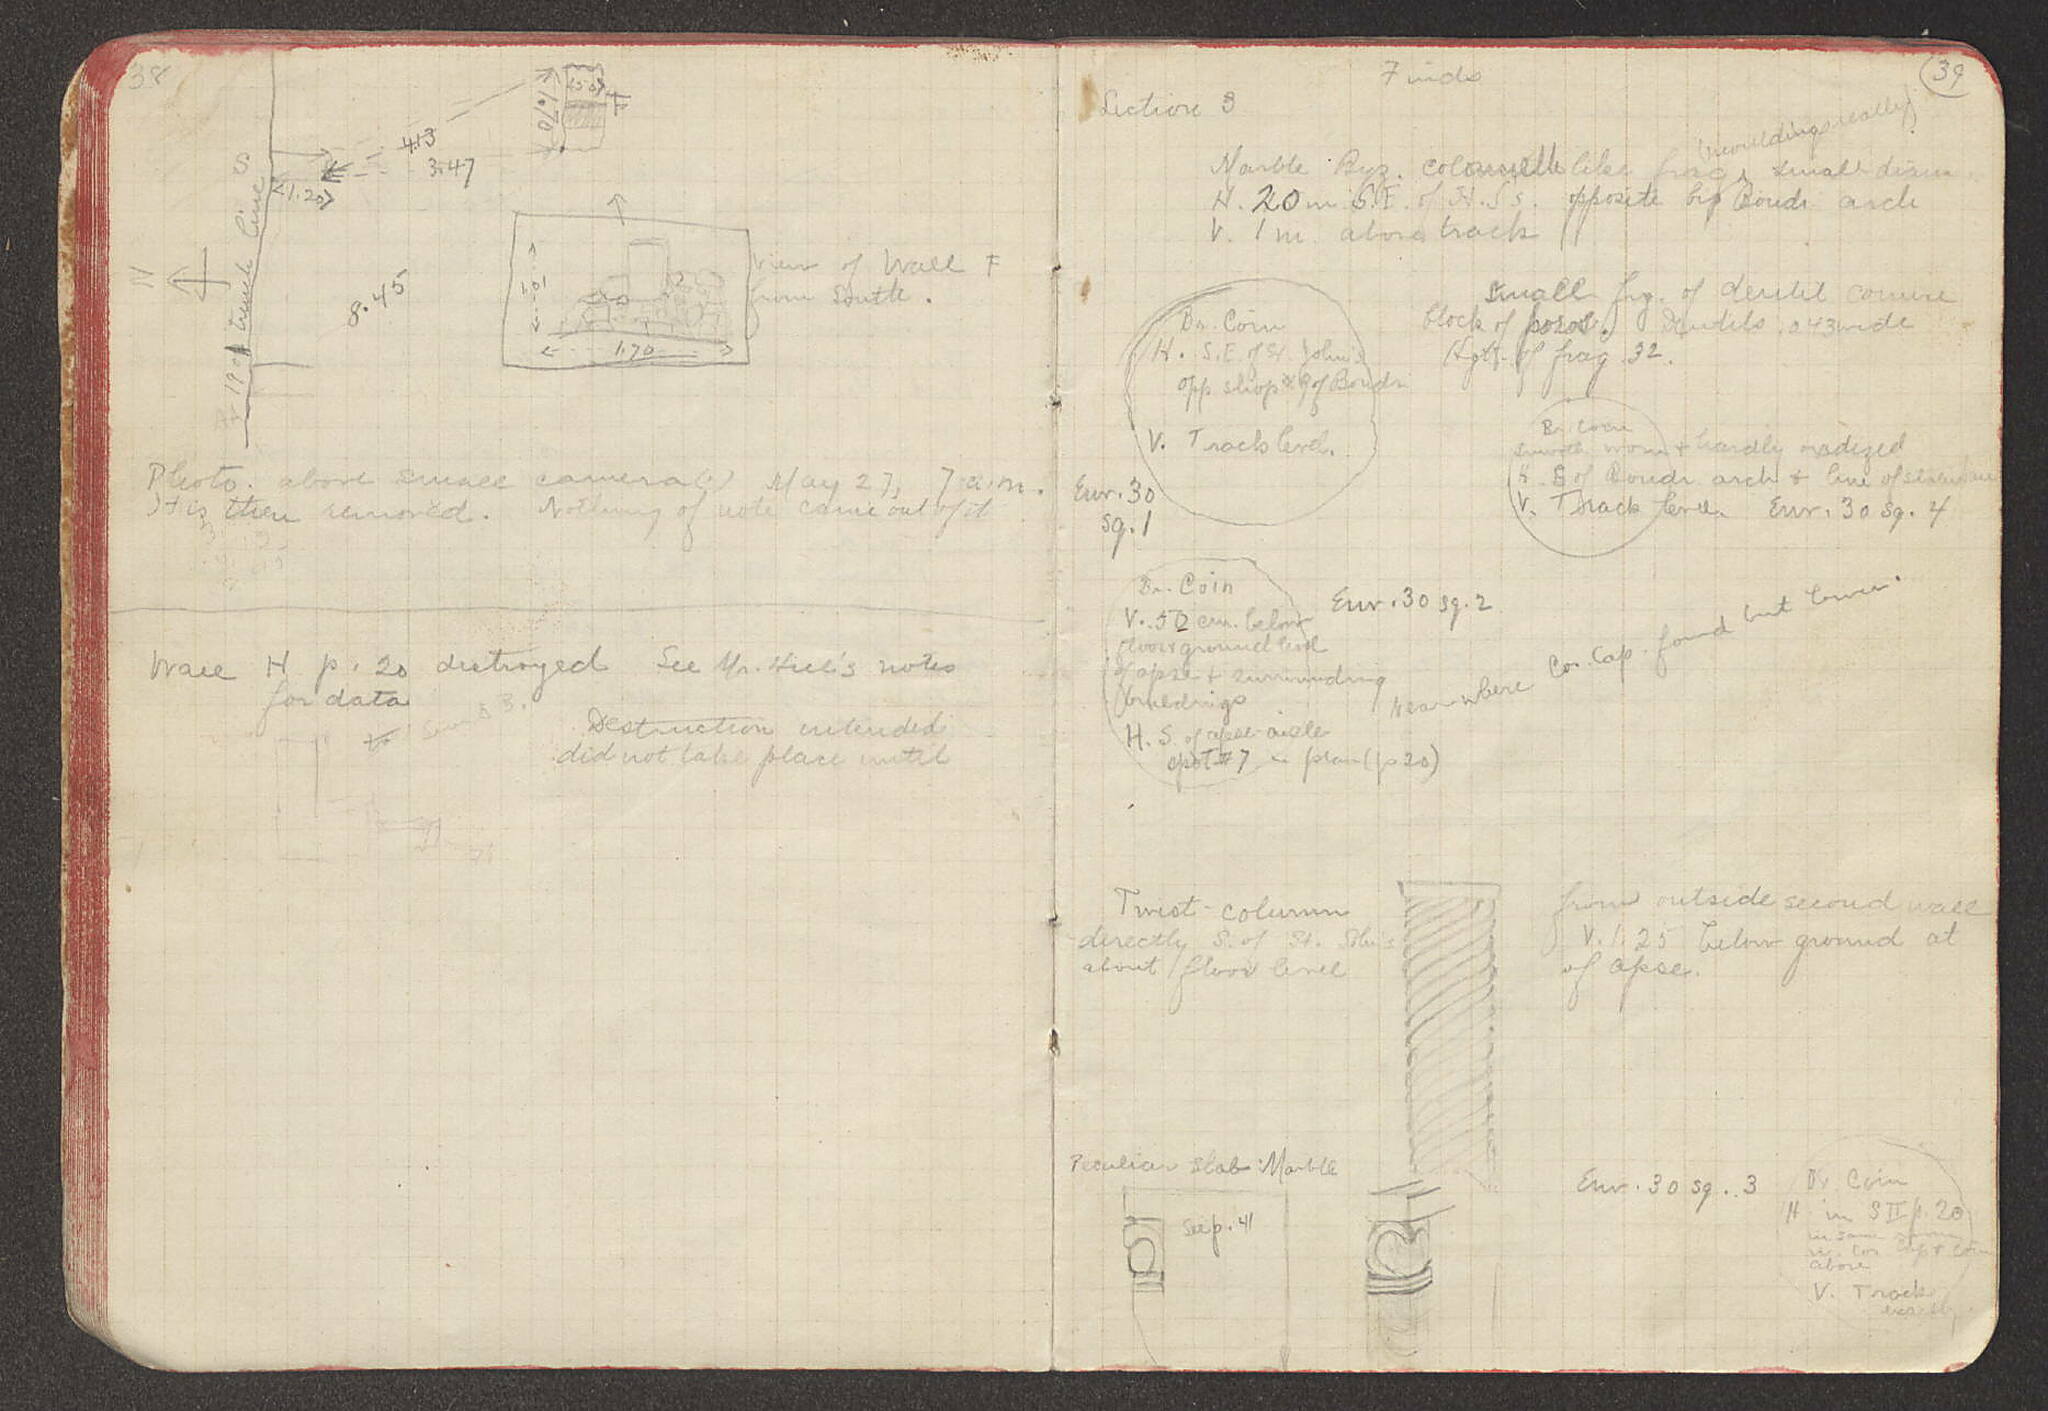 38
.50
1.70
F
4.13
3.47
S
1.20
N
trench line
8.45
1.01
1.70
View of Wall F
from South.
Photo. above small camera(1) May 27, 7 a.m.
It is then removed. Nothing of note came out of it
Wall H p. 20 destroyed See Mr. Hill's notes
for data
Destruction intended
did not take place until
39
Finds
Section 3
(mouldings really)
Marble Byz. colonnette like frag. small diam.
H. 20 m S.E. of St. J's. opposite big Boudr. arch
V. 1 m. above track
Small frg. of dentil cornice
block of poros. Dentils .043 wide
Hght. of frag .32.
Br. Coin
H. S.E. of St. John's
opp shop # 9 of Boudr.
V. Track level.
Env. 30
sq. 1
Br. Coin
smooth worn & hardly oxidized
H. of Boudr. arch & line of
V. Track level. Env. 30 sq. 4
Br. Coin
V. .50 cm. below
floor & ground level
of apse & surrounding
buildings
H. S. of apse-aisle
spot # 7 on plan (p 20)
Env. 30 sq. 2
Near where Cor. Cap. found but lower.
Twist-column
directly S. of St. John's
about floor level
from outside second wall
V. 1.25 below ground at
of apse.
Peculiar slab: Marble
See p. 41
Env. 30 sq. 3
Br. Coin
H. in S II p. 20
in same
w. Cor Cap & Coin
above
V. Track
exactly